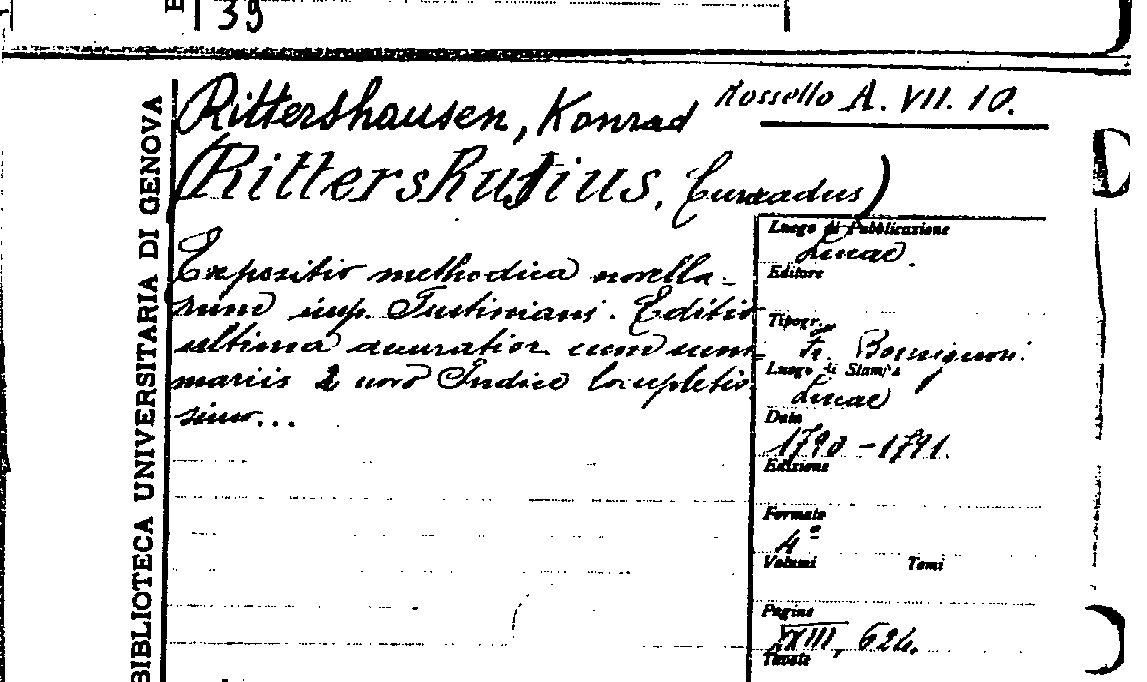 39
BIBLIOTECA UNIVERSITARIA DI GENOVA
Rittershausen, Konrad
Rossello A. VII. 10.
(Rittershusius, Cunradus)
Expositio methodica novella-
rum imp. Justiniani. Editio
ultima accuratior cum sum-
mariis & novo Indice locupletis
simo...
Luogo di Pubblicazione
Lucae.
Editore
Tipogr.
Fr. Bonsignori
Luogo di Stampa
Lucae
Data
1790-1791.
Edizione
Formato
4º
Volumi Tomi
Pagine
XXIII, 624.
Tavole